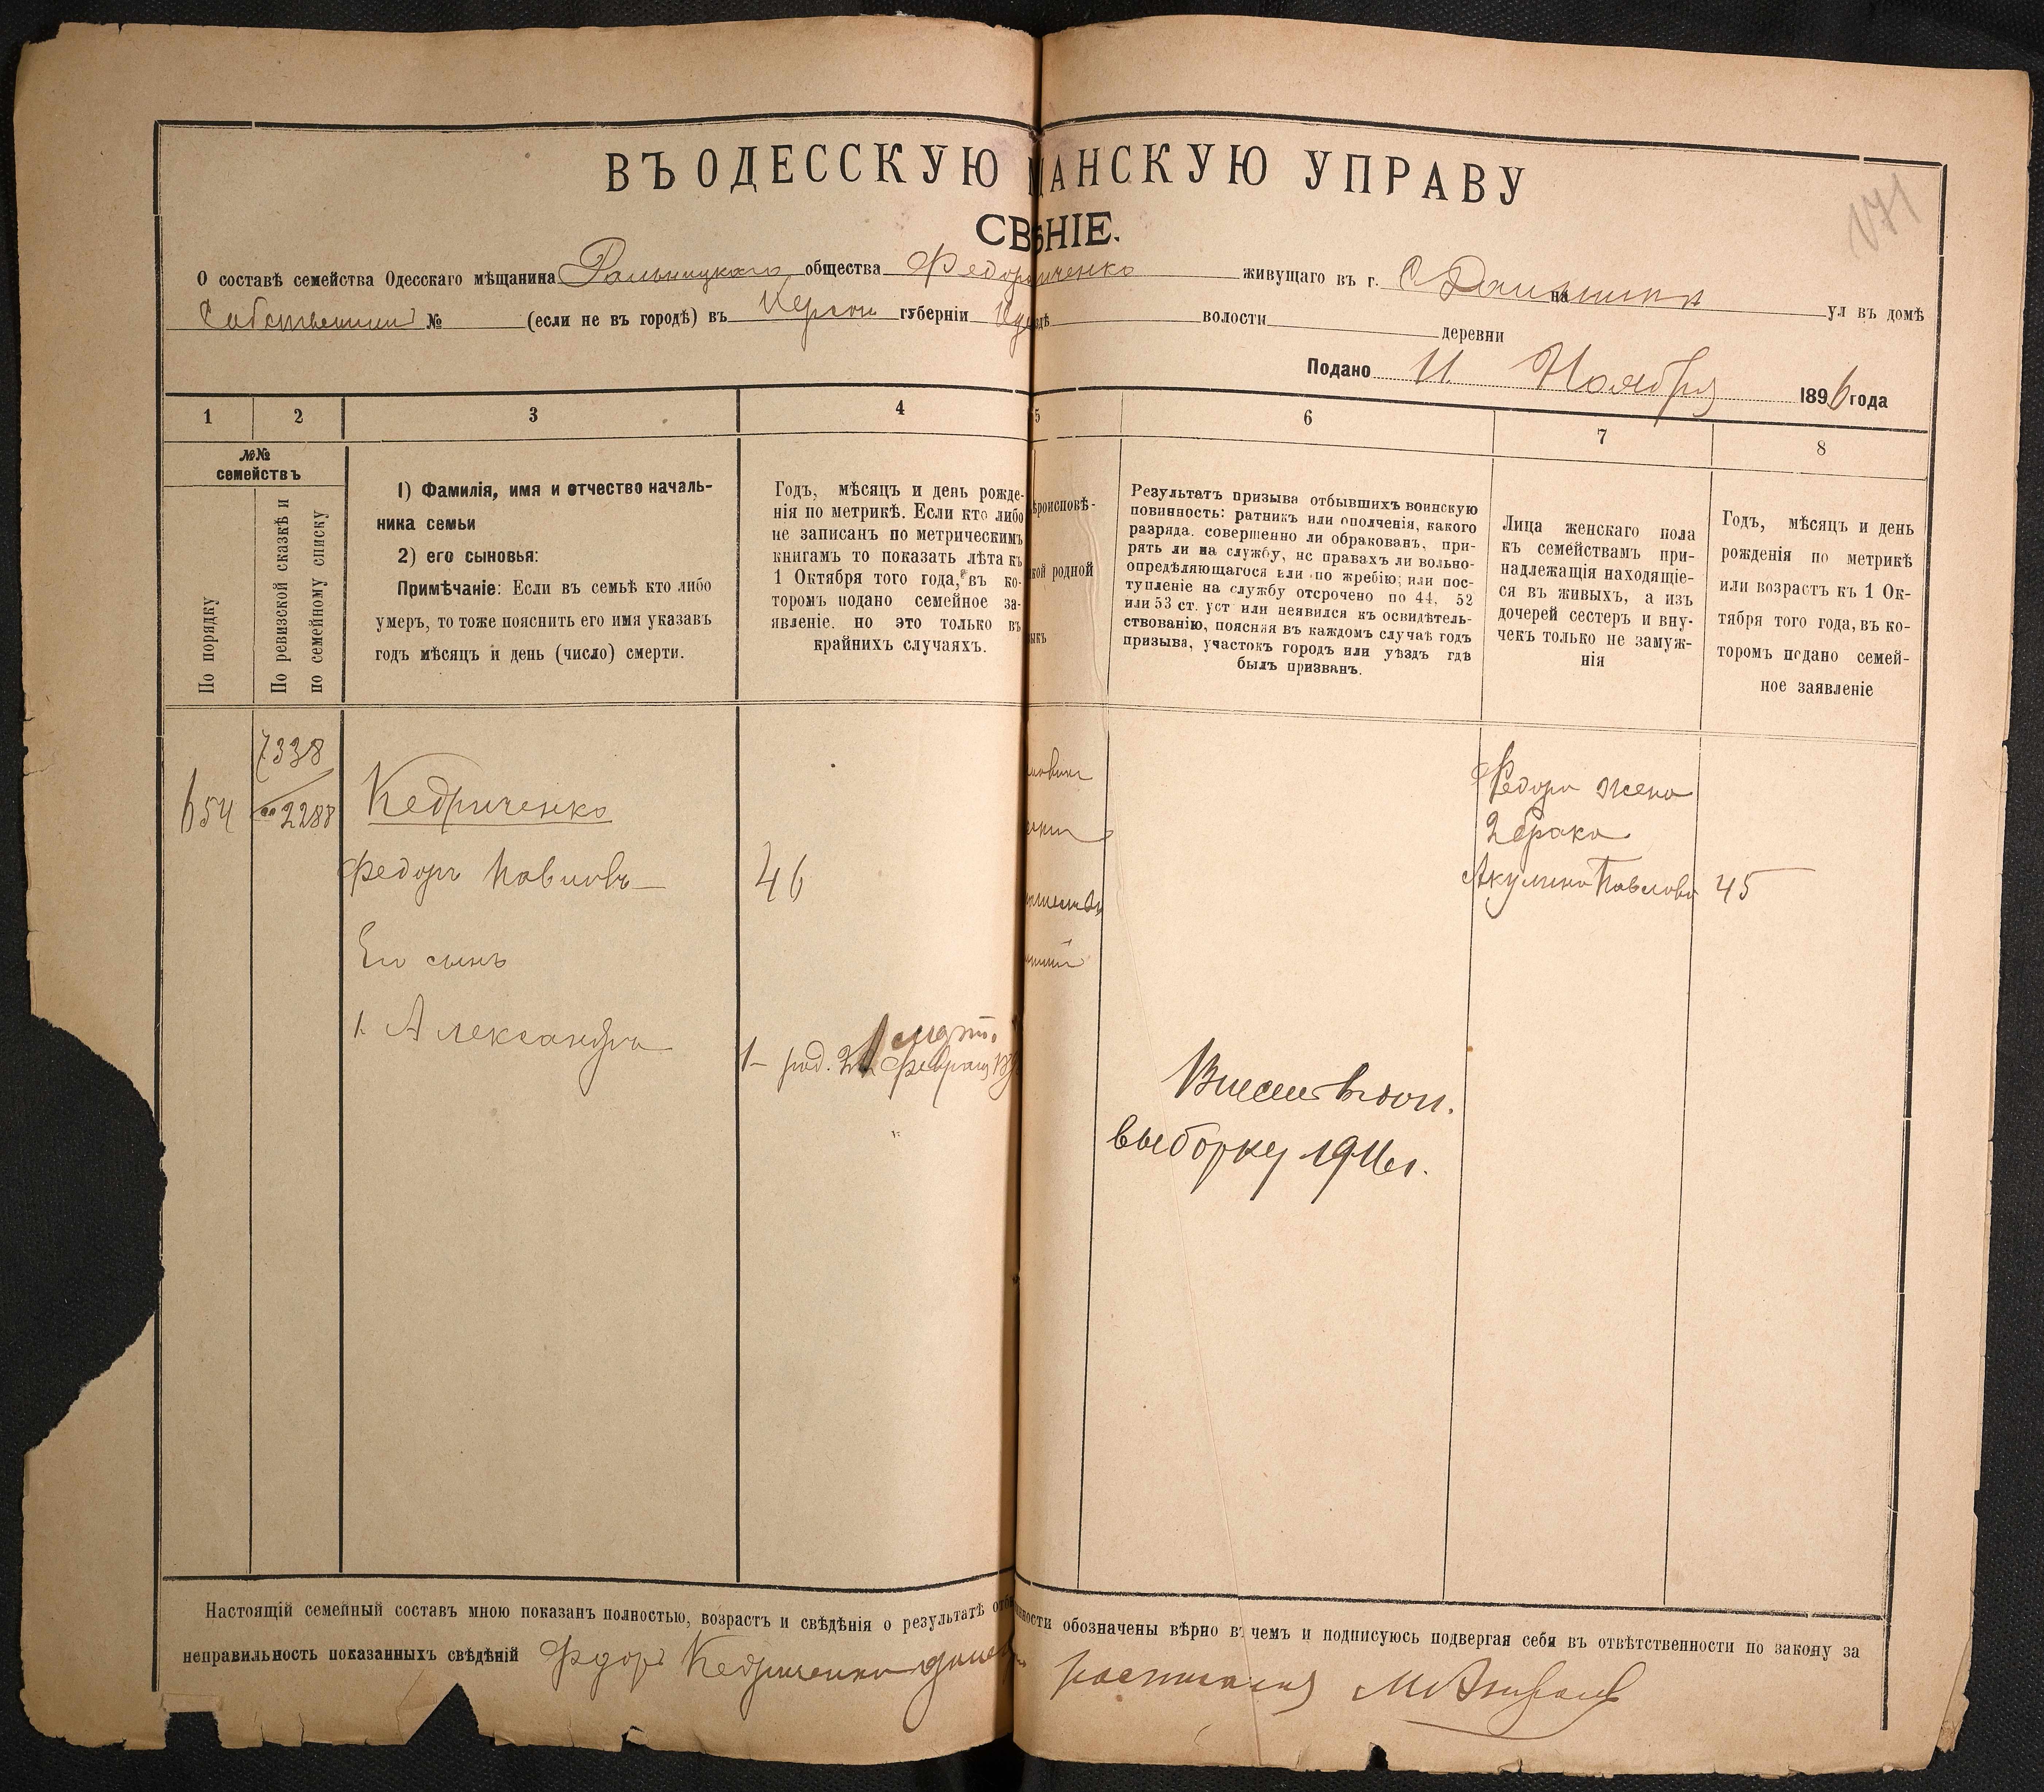 ВЪ ОДЕССКУЮ ЩАНСКУЮ УПРАВУ
171
СВѢНІЕ.
О составѣ семейства Одесскаго мѣщанина общества живущаго въ г. на ул въ домѣ
№ (если не въ городѣ) въ Херсон губерніи волости деревни
Подано 11 Ноября 1896 года
1 2 3 4 5 6 7 8
№№
семействъ
По порядку
По ревизской сказкѣ и
по семейному списку
1) Фамилія, имя и отчество началь-
ника семьи
2) его сыновья:
Примѣчаніе: Если въ семьѣ кто либо
умеръ, то тоже пояснить его имя указавъ
годъ мѣсяцъ и день (число) смерти.
Годъ, мѣсяцъ и день рожде-
нія по метрикѣ. Если кто либо
не записанъ по метрическимъ
книгамъ то показать лѣта къ
1 Октября того года, въ ко-
торомъ подано семейное за-
явленіе. но это только въ
крайнихъ случаяхъ.
ѣроисповѣ-
кой родной
ыкъ
Результатъ призыва отбывшихъ воинскую
повинность: ратникъ или ополченія, какого
разряда. совершенно ли обракованъ, при-
рять ли на службу, нс правахъ ли вольно-
опредѣляющагося или по жребію; или пос-
тупленіе на службу отсрочено по 44, 52
или 53 ст. уст или неявился къ освидѣтель-
ствованію, поясняя въ каждомъ случаѣ годъ
призыва, участокъ городъ или уѣздъ гдѣ
былъ призванъ.
Лица женскаго пола
къ семействамъ при-
надлежащія находящіе-
ся въ живыхъ, а изъ
дочерей сестеръ и вну-
чекъ только не замуж-
нія
Годъ, мѣсяцъ и день
рожденія по метрикѣ
или возрастъ къ 1 Ок-
тября того года, въ ко-
торомъ подано семей-
ное заявленіе
7338
654 2288 Кедриченко
Федора жена
2 брака
Федоръ Павловъ 46 Акулина Павлова 45
Его сынъ
1. Александръ
1 род. Февраля
выборку 1916г.
Настоящій семейный составъ мною показанъ полностью, возрастъ и свѣдѣнія о результатѣ отб нности обозначены вѣрно въ чемъ и подписуюсь подвергая себя въ отвѣтственности по закону за
неправильность показанныхъ свѣдѣній Кедриченко